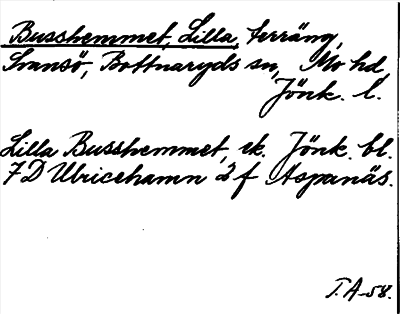 Busshemmet, Lilla, terräng,
Svansö, Bottnaryds sn, Mo hd,
Jönk. l.
Lilla Busshemmet, ek. Jönk. bl.
7D Ulricehamn 2f Aspanäs.
T.A-58.